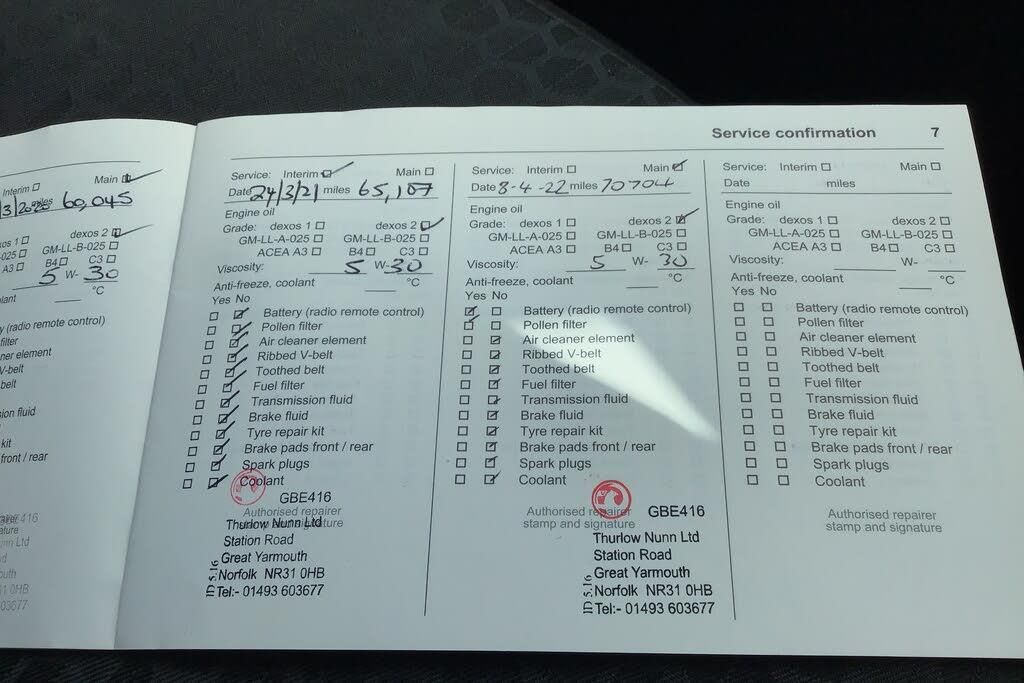 Service confirmation 7
Interim Main
60,045
dexos 2
GM-LL-B-025
A3 B4 C3
5 W- 30
°C
(radio remote control)
filter
element
V-belt
belt
fluid
kit
front / rear
Service: Interim Main
Date 24/3/21 miles 65,107
Engine oil
Grade: dexos 1 dexos 2
GM-LL-A-025 GM-LL-B-025
ACEA A3 B4 C3
Viscosity: 5 W-30
Anti-freeze, coolant °C
Yes No
Battery (radio remote control)
Pollen filter
Air cleaner element
Ribbed V-belt
Toothed belt
Fuel filter
Transmission fluid
Brake fluid
Tyre repair kit
Brake pads front / rear
Spark plugs
Coolant
GBE416
Authorised repairer
stamp and signature
Thurlow Nunn Ltd
Station Road
Great Yarmouth
Norfolk NR31 0HB
Tel:- 01493 603677
ID 5.16
Service: Interim Main
Date 8-4-22 miles 70704
Engine oil
Grade: dexos 1 dexos 2
GM-LL-A-025 GM-LL-B-025
ACEA A3 B4 C3
Viscosity: 5 W- 30
Anti-freeze, coolant °C
Yes No
Battery (radio remote control)
Pollen filter
Air cleaner element
Ribbed V-belt
Toothed belt
Fuel filter
Transmission fluid
Brake fluid
Tyre repair kit
Brake pads front / rear
Spark plugs
Coolant
GBE416
Authorised repairer
stamp and signature
Thurlow Nunn Ltd
Station Road
Great Yarmouth
Norfolk NR31 0HB
Tel:- 01493 603677
ID 5.16
Service: Interim Main
Date miles
Engine oil
Grade: dexos 1 dexos 2
GM-LL-A-025 GM-LL-B-025
ACEA A3 B4 C3
Viscosity: W-
Anti-freeze, coolant °C
Yes No
Battery (radio remote control)
Pollen filter
Air cleaner element
Ribbed V-belt
Toothed belt
Fuel filter
Transmission fluid
Brake fluid
Tyre repair kit
Brake pads front / rear
Spark plugs
Coolant
Authorised repairer
stamp and signature